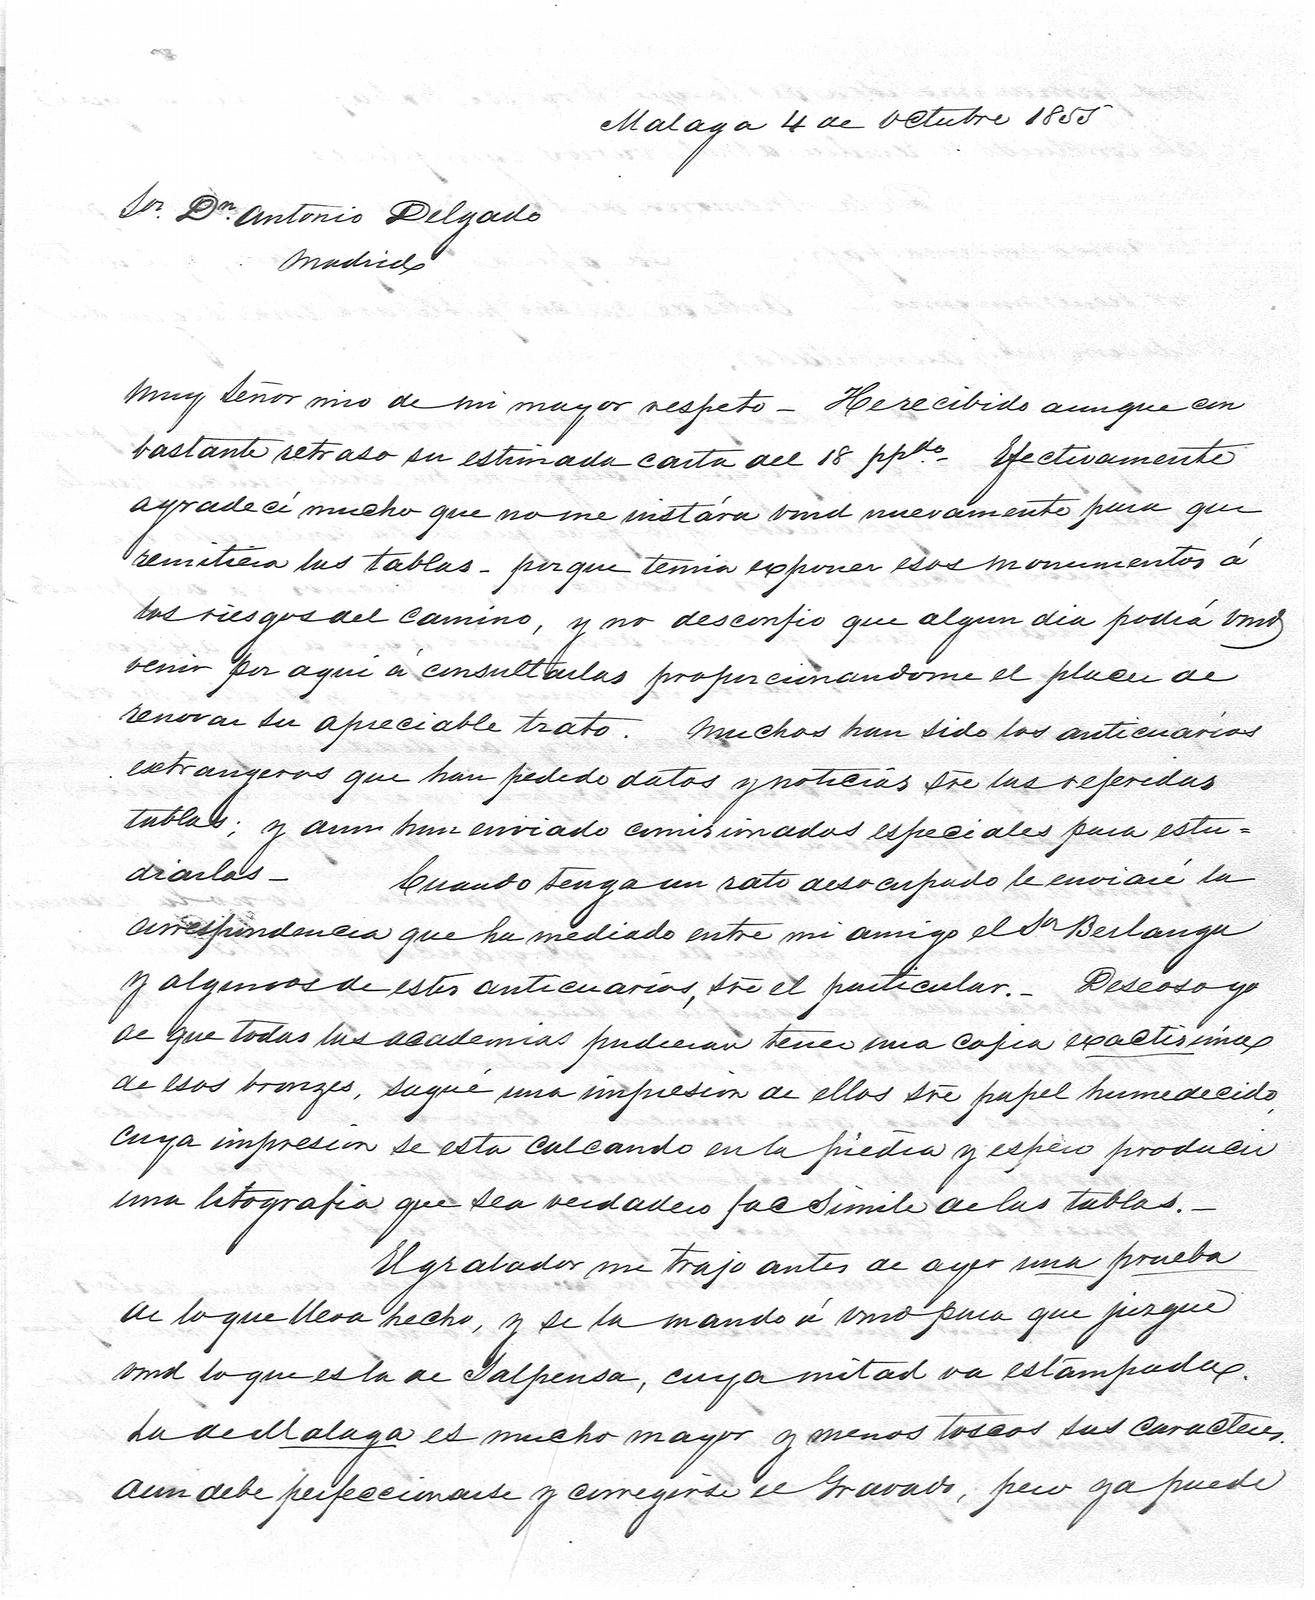 Malaga 4 de Octubre 1855
Sor. Dn. Antonio Delgado
Madrid
Muy Señor mio de mi mayor respeto – He recibido aunque con
bastante retraso su estimada carta del 18 ppdo. – Efectivamente
agradecí mucho que no me instára vmd nuevamente para que
remitiera las tablas – porque temia exponer esos monumentos á
los riesgos del camino, y no desconfio que algun dia podrá vmd
venir por aqui á consultarlas proporcionandome el placer de
renovar su apreciable trato. Muchos han sido los anticuarios
extrangeros que han pedido datos y noticias sre las referidas
tablas; y aun han enviado comisionados especiales para estu=
diarlas – Cuando tenga un rato desocupado le enviaré la
correspondencia que ha mediado entre mi amigo el Sr Berlanga
y algunos de estos anticuarios, sre el particular. – Deseoso yo
de que todas las academias pudieran tener una copia exactisima
de esos bronzes, saqué una impresion de ellos sre papel humedecido,
cuya impresion se esta calcando en la piedra y espero producir
una litografia que sea verdadero fac simile de las tablas. –
El grabador me trajo antes de ayer una prueba
de lo que lleva hecho, y se la mando á vmd para que juzgue
vmd lo que es la de Salpensa, cuya mitad va estampada.
La de Malaga es mucho mayor y menos toscos sus caracteres.
Aun debe perfeccionarse y corregirse el Gravado, pero ya puede